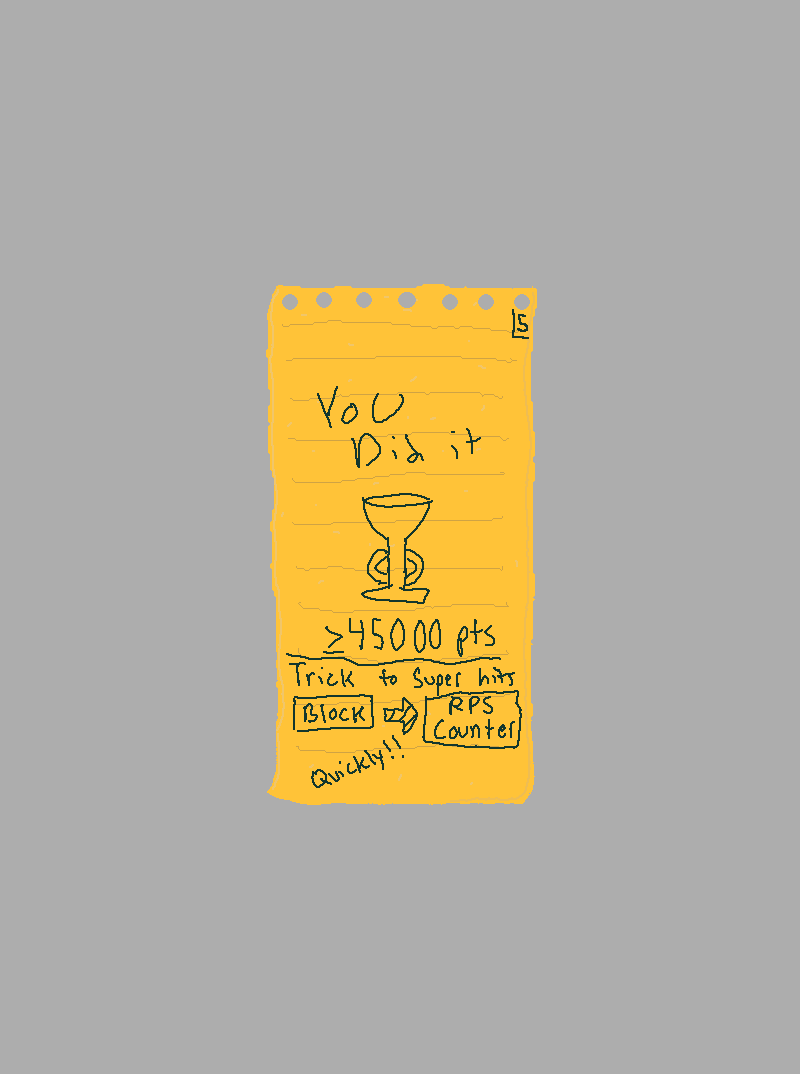 5
You
Did it
≥45000 pts
Trick to Super hits
Block
RPS
Counter
Quickly!!